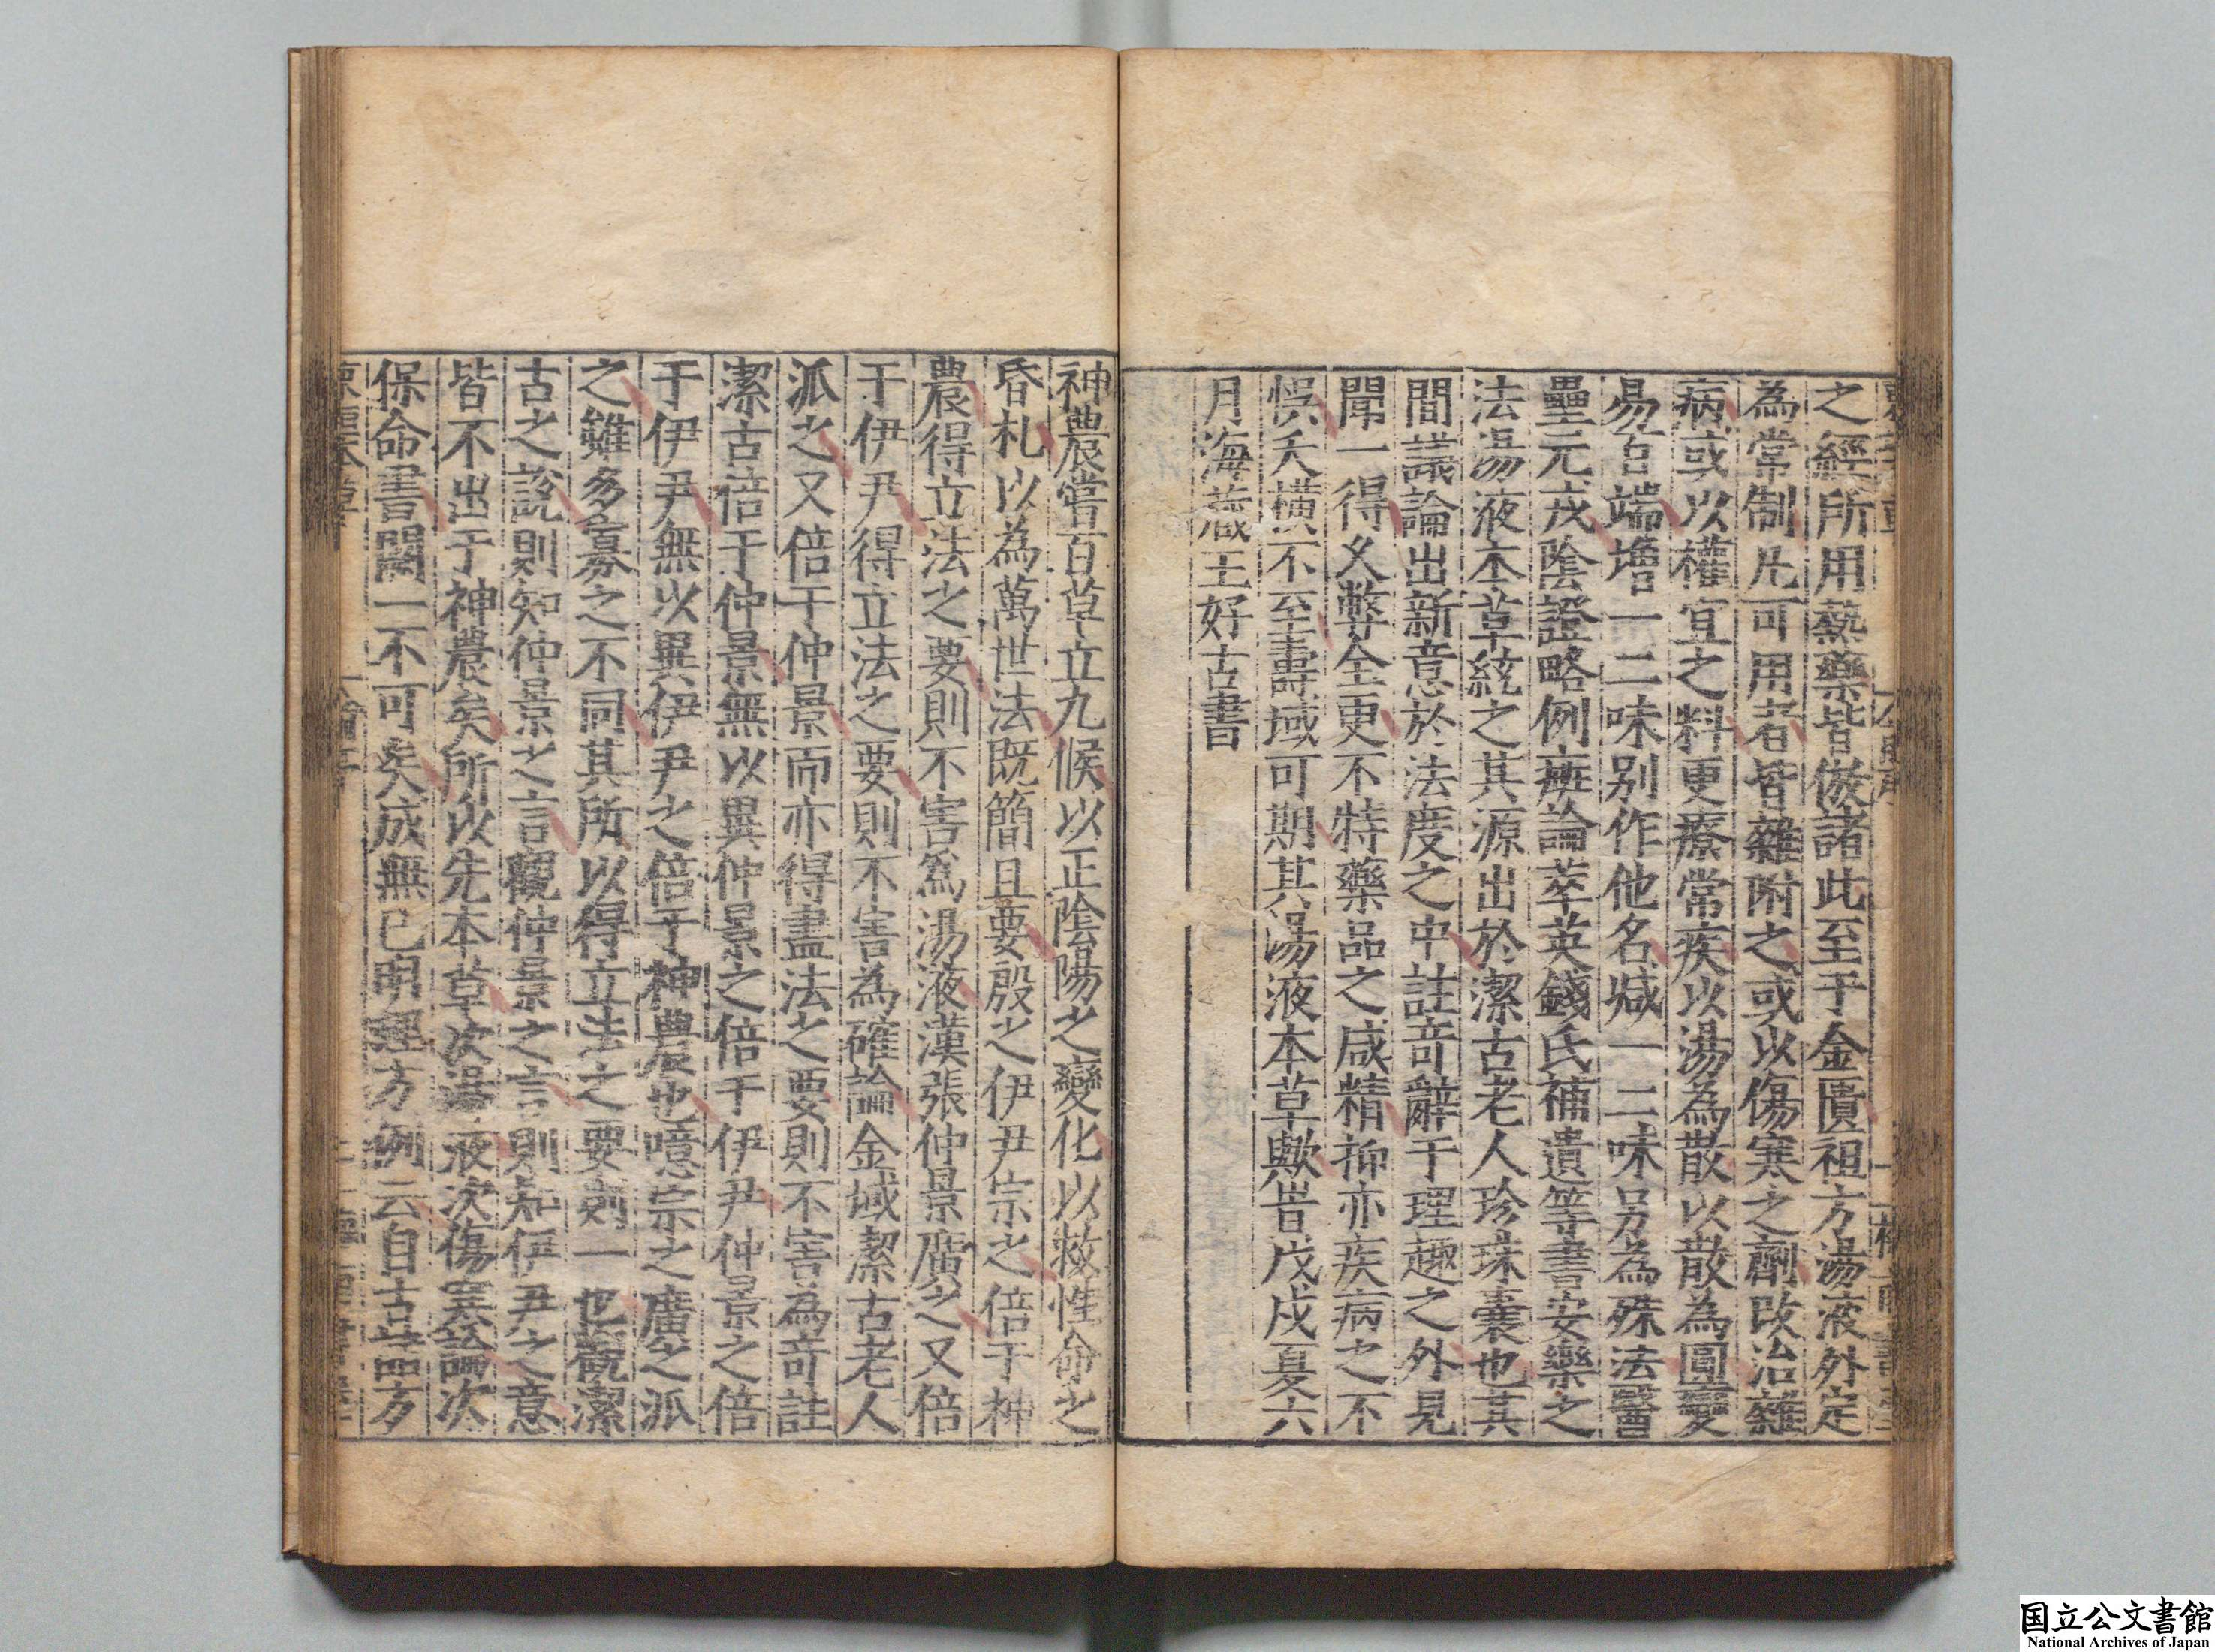 之經所用熱藥皆倣諸此至于金匱祖方湯液外定
為常制凡可用者皆雜附之或以傷寒之劑改治雜
病或以權宜之料更療常疾以湯為散以散為圓變
易百端增一二味别作他名減一二味另為殊法醫
壘元戎隂證略例癍論萃英錢氏補遺等書安樂之
法湯液本草統之其源出於潔古老人珍珠囊也其
間議論出新意於法度之中註竒辭于理趣之外見
聞一得久弊全更不特藥品之咸精抑亦疾病之不
悮夭橫不至壽域可期其湯液本草歟旹戊戍夏六
月海蔵王好古書
神農甞百草立九候以正隂陽之變化以救性命之
昏札以為萬世法既簡且要殷之伊尹宗之倍于神
農得立法之要則不害爲湯液漢張仲景廣之又倍
于伊尹得立法之要則不害為確論金域潔古老人
派之又倍于仲景而亦得盡法之要則不害為竒註
潔古倍于仲景無以異仲景之倍于伊尹仲景之倍
于伊尹無以異伊尹之倍于神農也噫宗之廣之派
之雖多寡之不同其所以得立法之要則一也觀潔
古之說則知仲景之言觀仲景之言則知伊尹之意
皆不出于神農矣所以先本草次湯液次傷寒論次
保命書闕一不可矣成無已明理方例云自古諸方
国立公文書館
National Archives of Japan